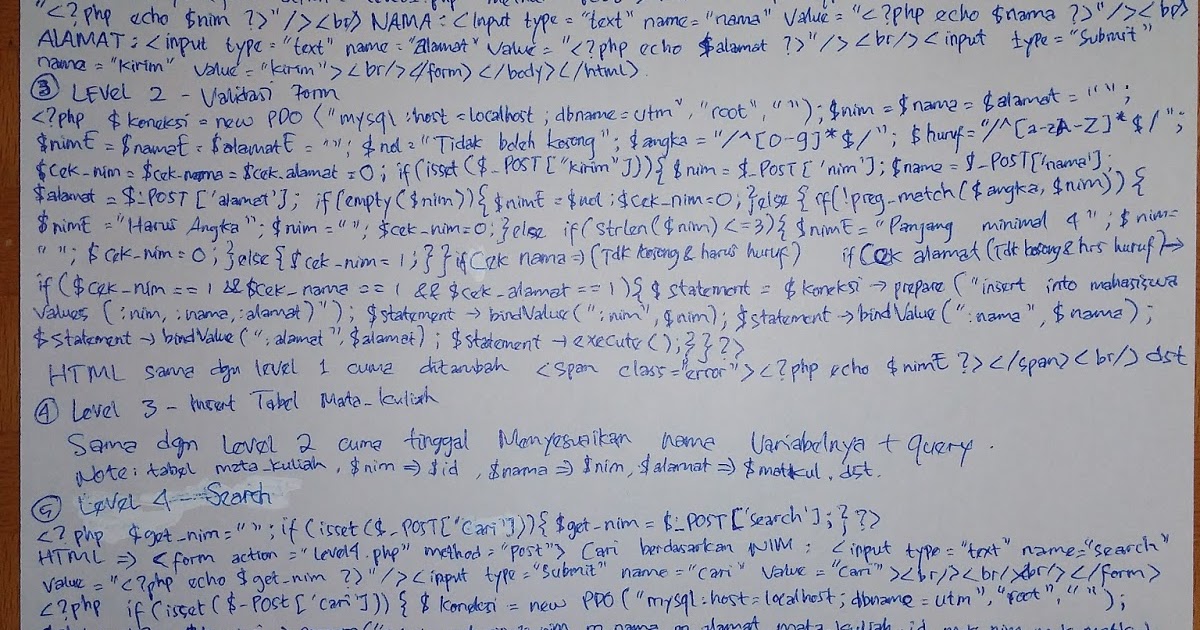 "<?php echo $nim ?>"/><br/> NAMA : <Input type = "text" name = "nama" Value = "<?php echo $nama ?>"/><br/>
ALAMAT : <input type = "text" name = "alamat" Value = "<?php echo $alamat ?>"/><br/><input type = "Submit"
name = "kirim" Value = "kirim"><br/></form></body></html>
③ LEVEL 2 - Validasi Form
<?php $koneksi = new PDO ("mysql:host = localhost; dbname = utm", "root", ""); $nim = $nama = $alamat = "";
$nimE = $namaE = $alamatE = ""; $nol = "Tidak boleh kosong"; $angka = "/^[0-9]*$/"; $huruf = "/^[a-zA-Z]*$/";
$cek-nim = $cek-nama = $cek.alamat = 0; if(isset($_POST["kirim"])){ $nim = $_POST['nim']; $name = $_POST['nama'];
$alamat = $_POST['alamat']; if(empty($nim)){ $nimE = $nol; $cek_nim=0; }else { if(!preg_match($angka, $nim)) {
$nimE = "Harus Angka"; $nim = ""; $cek-nim=0; }else if(strlen($nim) <=3){ $nimE = "Panjang minimal 4"; $nim=
""; $cek-nim = 0; }else{ $cek-nim = 1; } } if Cek nama => (Tdk kosong & harus huruf) if Cek alamat (Tdk kosong & hrs huruf) →
if ($cek_nim == 1 && $cek_nama == 1 && $cek_alamat == 1){ $statement = $koneksi → prepare ("insert into mahasiswa
values (:nim, :nama, :alamat)"); $statement → bindValue(":nim", $nim); $statement → bindValue(":nama", $nama);
$statement → bindValue(":alamat", $alamat); $statement → execute(); } } ?>
HTML sama dgn level 1 cuma ditambah <span class="error"><?php echo $nimE ?></span><br/> dst
④ Level 3 - Insert Tabel Mata_kuliah
Sama dgn Level 2 cuma tinggal Menyesuaikan nama Variabelnya + query.
Note : tabel mata_kuliah, $nim => $id, $nama => $nim, $alamat => $matkul, dst.
⑤ Level 4 - Search
<?php $get_nim = ""; if (isset($_POST['Cari'])){ $get_nim = $_POST['search']; } ?>
HTML => <form action = "level4.php" method = "post"> Cari berdasarkan NIM : <input type = "text" name="search"
Value = "<?php echo $get_nim ?>"/><input type = "Submit" name = "cari" Value = "Cari"><br/><br/><br/></form>
<?php if (isset($-Post['cari'])) { $koneksi = new PDO ("mysql:host=localhost; dbname = utm", "root", "");